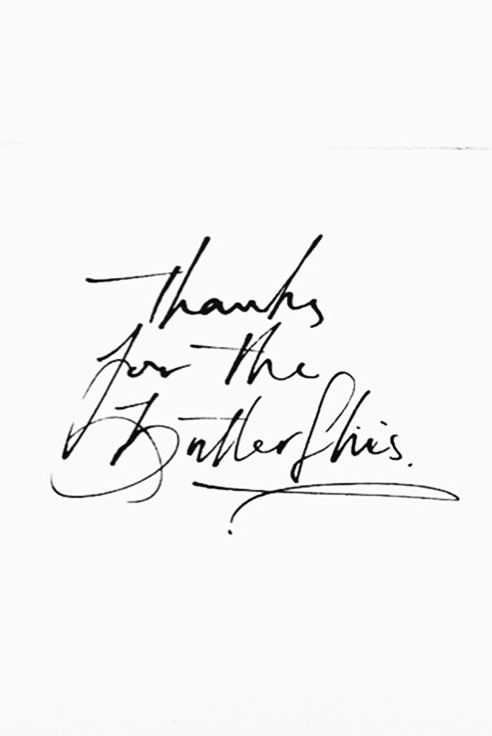 Thanks
for the
Butterflies.